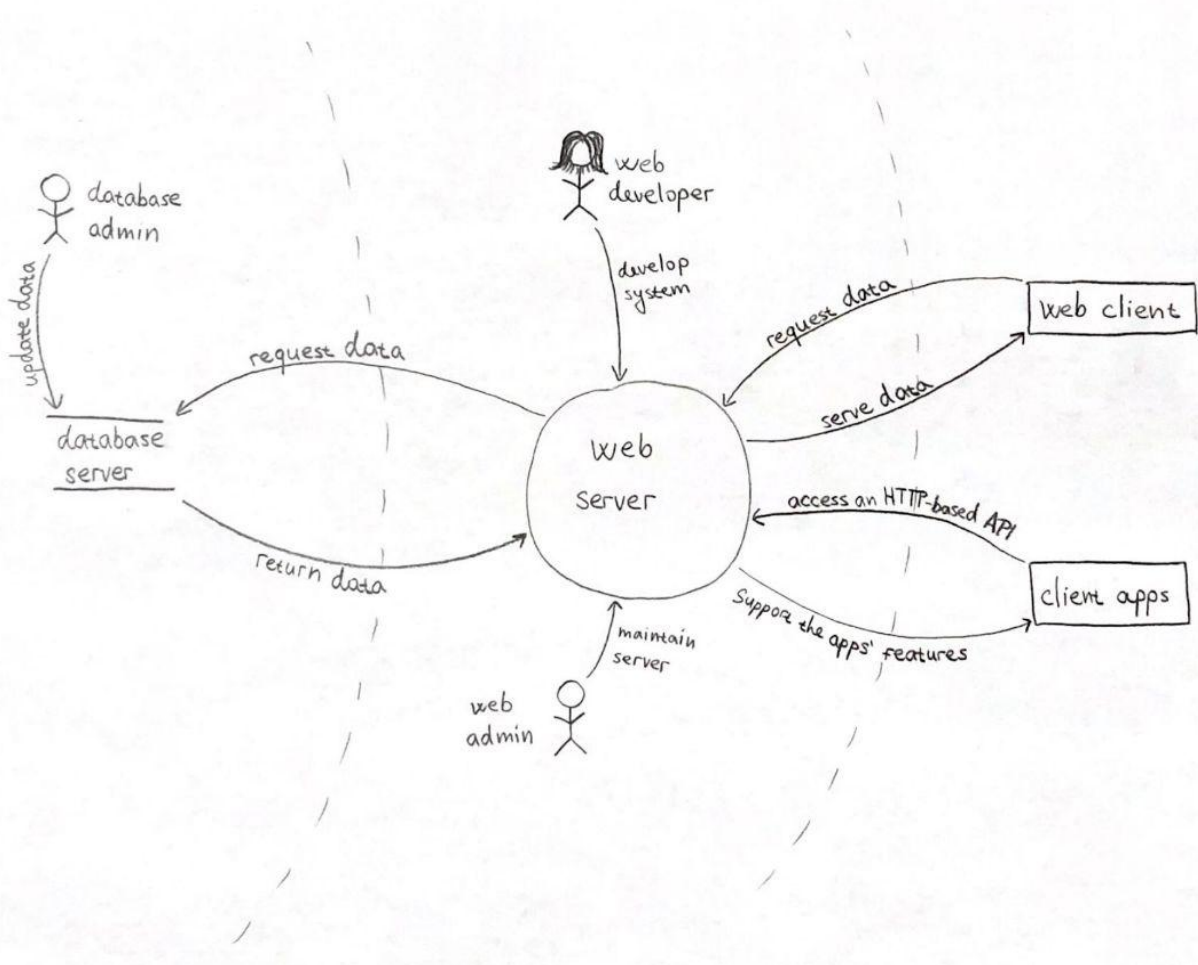 database
admin
update data
web
developer
develop
system
request data
web client
request data
serve data
database
server
web
server
access an HTTP-based API
client apps
return data
Support the apps' features
maintain
server
web
admin